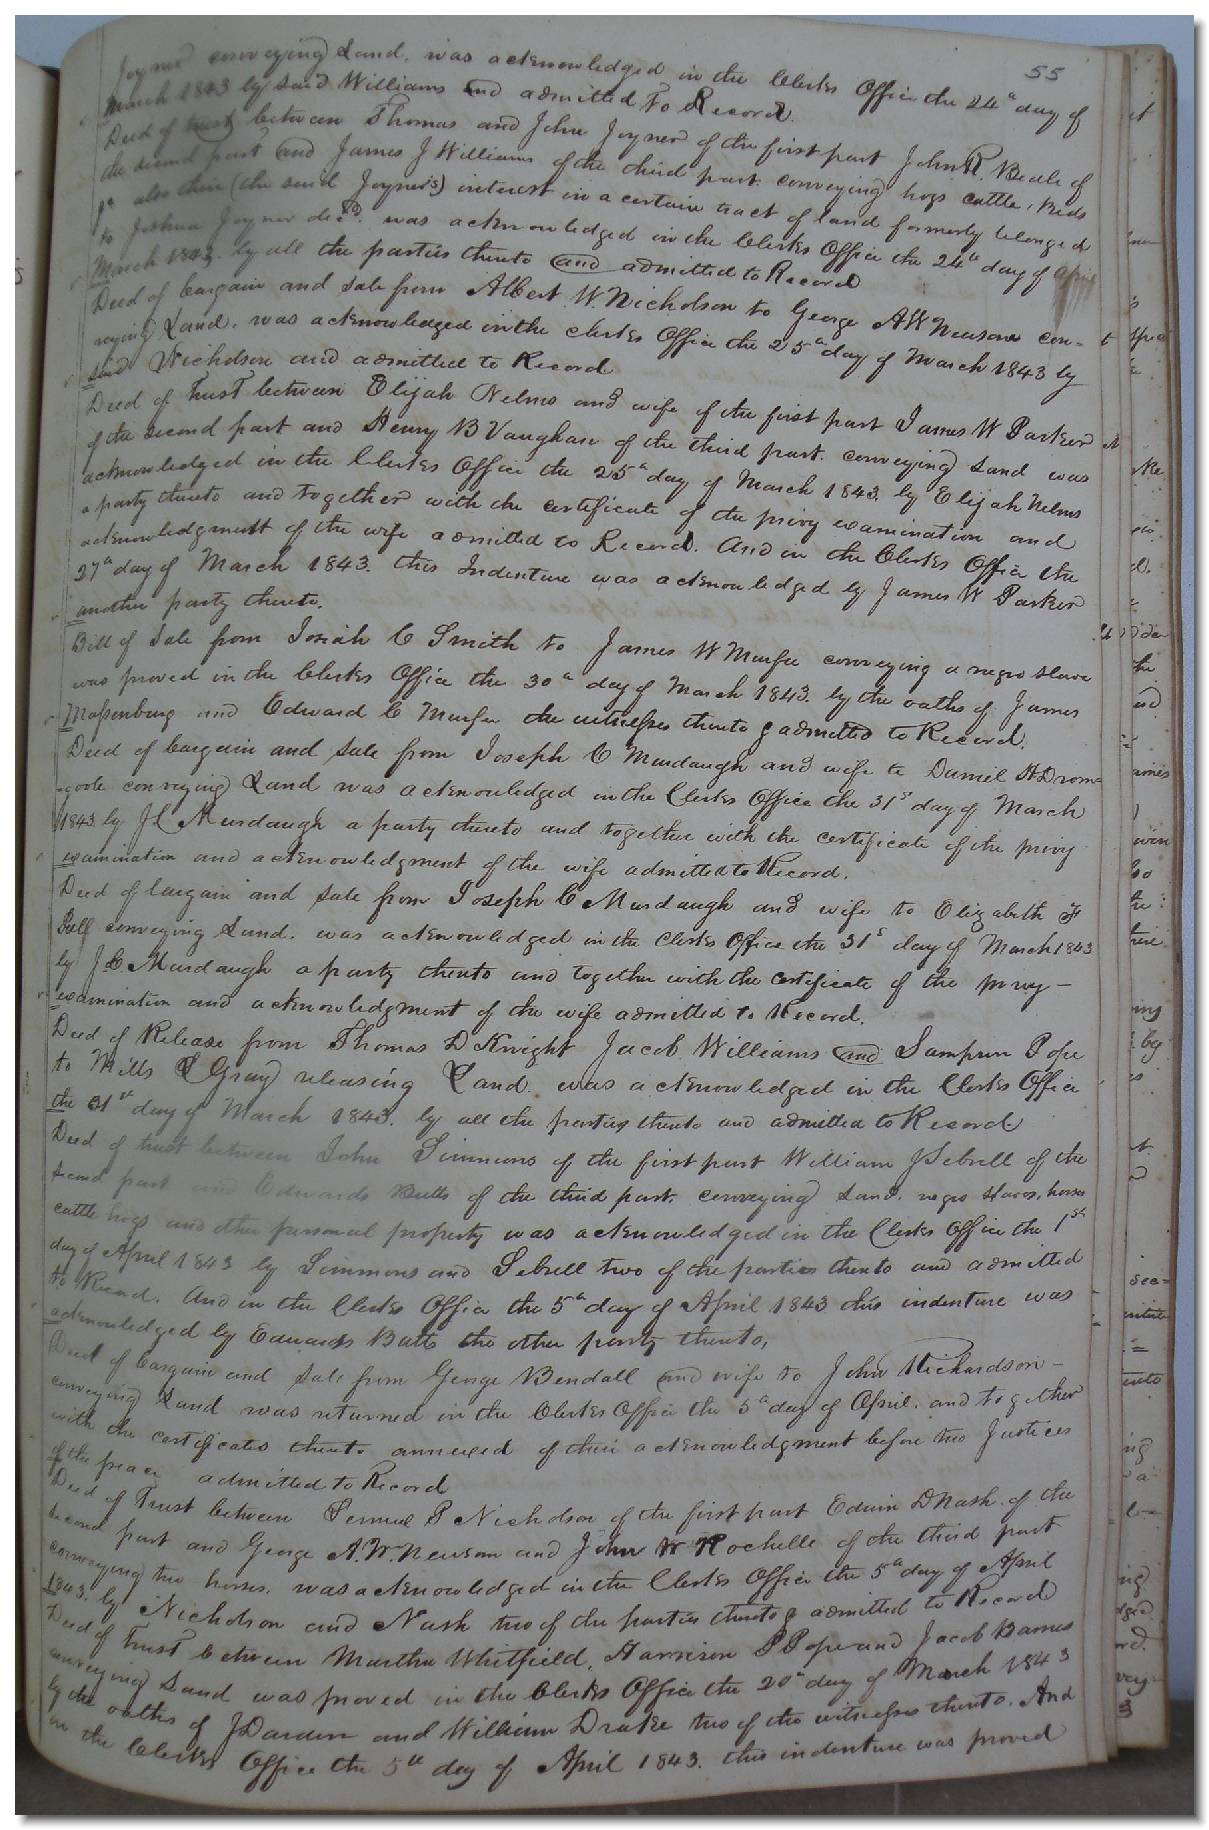 55
Joyner conveying Land. was acknowledged in the Clerks Office the 24th day of
March 1843 by said Williams and admitted to Record.
Deed of trust between Thomas and John Joyner of the first part John R. Beale of
the second part and James J Williams of the third part. conveying hogs cattle, Beds
also their (the said Joyner's) interest in a certain tract of land formerly belonged
to Joshua Joyner decd. was acknowledged in the Clerks Office the 24th day of April
March 1843. by all the parties thereto and admitted to Record
Deed of bargain and sale from Albert W. Nicholson to George A W Newsom con-
veying Land. was acknowledged in the Clerks Office the 25th day of March 1843 by
said Nicholson and admitted to Record
Deed of trust between Elijah Nelms and wife of the first part James W Parker
of the second part and Henry B Vaughan of the third part. conveying Land was
acknowledged in the Clerks Office the 25th day of March 1843. by Elijah Nelms
a party thereto and together with the certificate of the privy examination and
acknowledgment of the wife admitted to Record. And in the Clerks Office the
27th day of March 1843. this Indenture was acknowledged by James W Parker
another party thereto.
Bill of Sale from Josiah C Smith to James W Murfee conveying a negro slave
was proved in the Clerks Office the 30th day of March 1843. by the oaths of James
Massenburg and Edward C Murfee the witnesses thereto & admitted to Record.
Deed of bargain and sale from Joseph C Murdaugh and wife to Daniel H Drom=
-goole conveying Land was acknowledged in the Clerks Office the 31st day of March
1843. by J C Murdaugh a party thereto and together with the certificate of the privy
examination and acknowledgment of the wife admitted to Record.
Deed of bargain and sale from Joseph C Murdaugh and wife to Elizabeth F
Bell conveying Land. was acknowledged in the Clerks Office the 31st day of March 1843
by J. C. Murdaugh a party thereto and together with the certificate of the privy-
examination and acknowledgment of the wife admitted to Record.
Deed of Release from Thomas D Knight Jacob Williams and Sampson Pope
to Mills S Gray releasing Land. was acknowledged in the Clerks Office
the 31st day of March 1843. by all the parties thereto and admitted to Record
Deed of trust between John Simmons of the first part William J Sebrell of the
second part and Edwards Butts of the third part. conveying Land. negro slaves, horses
cattle hogs and other personal property was acknowledged in the Clerks Office the 1st
day of April 1843 by Simmons and Sebrell two of the parties thereto and admitted
to Record. And in the Clerks Office the 5th day of April 1843 this indenture was
acknowledged by Edwards Butts the other party thereto,
Deed of bargain and sale from George Bendall and wife to John Richardson-
conveying Land was returned in the Clerks Office the 5th day of April. and together
with the certificates thereto annexed of their acknowledgment before two Justices
of the peace admitted to Record
Deed of Trust between Lemuel P Nicholson of the first part Edwin D Nash of the
second part and George A. W. Newsom and John W Rochelle of the third part
conveying two horses. was acknowledged in the Clerks Office the 5th day of April
1843. by Nicholson and Nash two of the parties thereto & admitted to Record
Deed of trust between Martha Whitfield, Harrison P Pope and Jacob Barnes
conveying Land was proved in the Clerks Office the 20th day of March 1843
by the oaths of J Darden and William Drake two of the witnesses thereto. And
in the Clerks Office the 5th day of April 1843. this indenture was proved